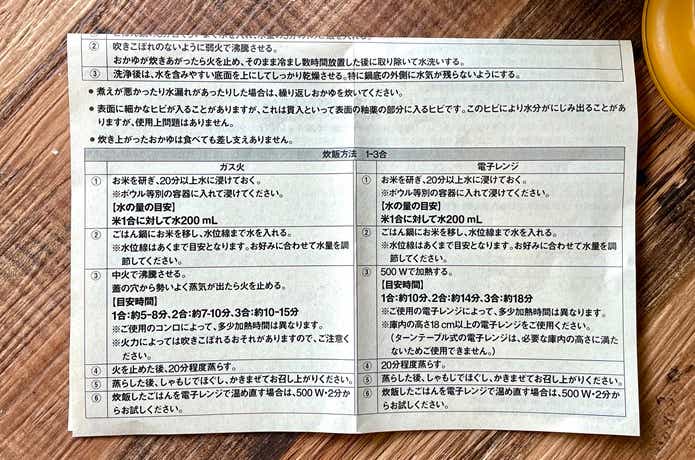 ② 吹きこぼれのないように弱火で沸騰させる。
おかゆが炊きあがったら火を止め、そのまま冷まし数時間放置した後に取り除いて水洗いする。
③ 洗浄後は、水を含みやすい底面を上にしてしっかり乾燥させる。特に鍋底の外側に水気が残らないようにする。
● 煮えが悪かったり水漏れがあったりした場合は、繰り返しおかゆを炊いてください。
● 表面に細かなヒビが入ることがありますが、これは貫入といって表面の釉薬の部分に入るヒビです。このヒビにより水分がにじみ出ることがあ
りますが、使用上問題はありません。
● 炊き上がったおかゆは食べても差し支えありません。
炊飯方法 1-3合
ガス火
① お米を研ぎ、20分以上水に浸けておく。
※ボウル等別の容器に入れて浸けてください。
【水の量の目安】
米1合に対して水200 mL
② ごはん鍋にお米を移し、水位線まで水を入れる。
※水位線はあくまで目安となります。お好みに合わせて水量を調
節してください。
③ 中火で沸騰させる。
蓋の穴から勢いよく蒸気が出たら火を止める。
【目安時間】
1合:約5-8分、2合:約7-10分、3合:約10-15分
※ご使用のコンロによって、多少加熱時間は異なります。
※火力によっては吹きこぼれるおそれがありますので、ご注意く
ださい。
④ 火を止めた後、20分程度蒸らす。
⑤ 蒸らした後、しゃもじでほぐし、かきまぜてお召し上がりください。
⑥ 炊飯したごはんを電子レンジで温め直す場合は、500 W・2分か
らお試しください。
電子レンジ
① お米を研ぎ、20分以上水に浸けておく。
※ボウル等別の容器に入れて浸けてください。
【水の量の目安】
米1合に対して水200 mL
② ごはん鍋にお米を移し、水位線まで水を入れる。
※水位線はあくまで目安となります。お好みに合わせて水量を調
節してください。
③ 500 Wで加熱する。
【目安時間】
1合:約10分、2合:約14分、3合:約18分
※ご使用の電子レンジによって、多少加熱時間は異なります。
※庫内の高さ18 cm以上の電子レンジをご使用ください。
(ターンテーブル式の電子レンジは、必要な庫内の高さに満た
ないためご使用できません。)
④ 20分程度蒸らす。
⑤ 蒸らした後、しゃもじでほぐし、かきまぜてお召し上がりください。
⑥ 炊飯したごはんを電子レンジで温め直す場合は、500 W・2分か
らお試しください。